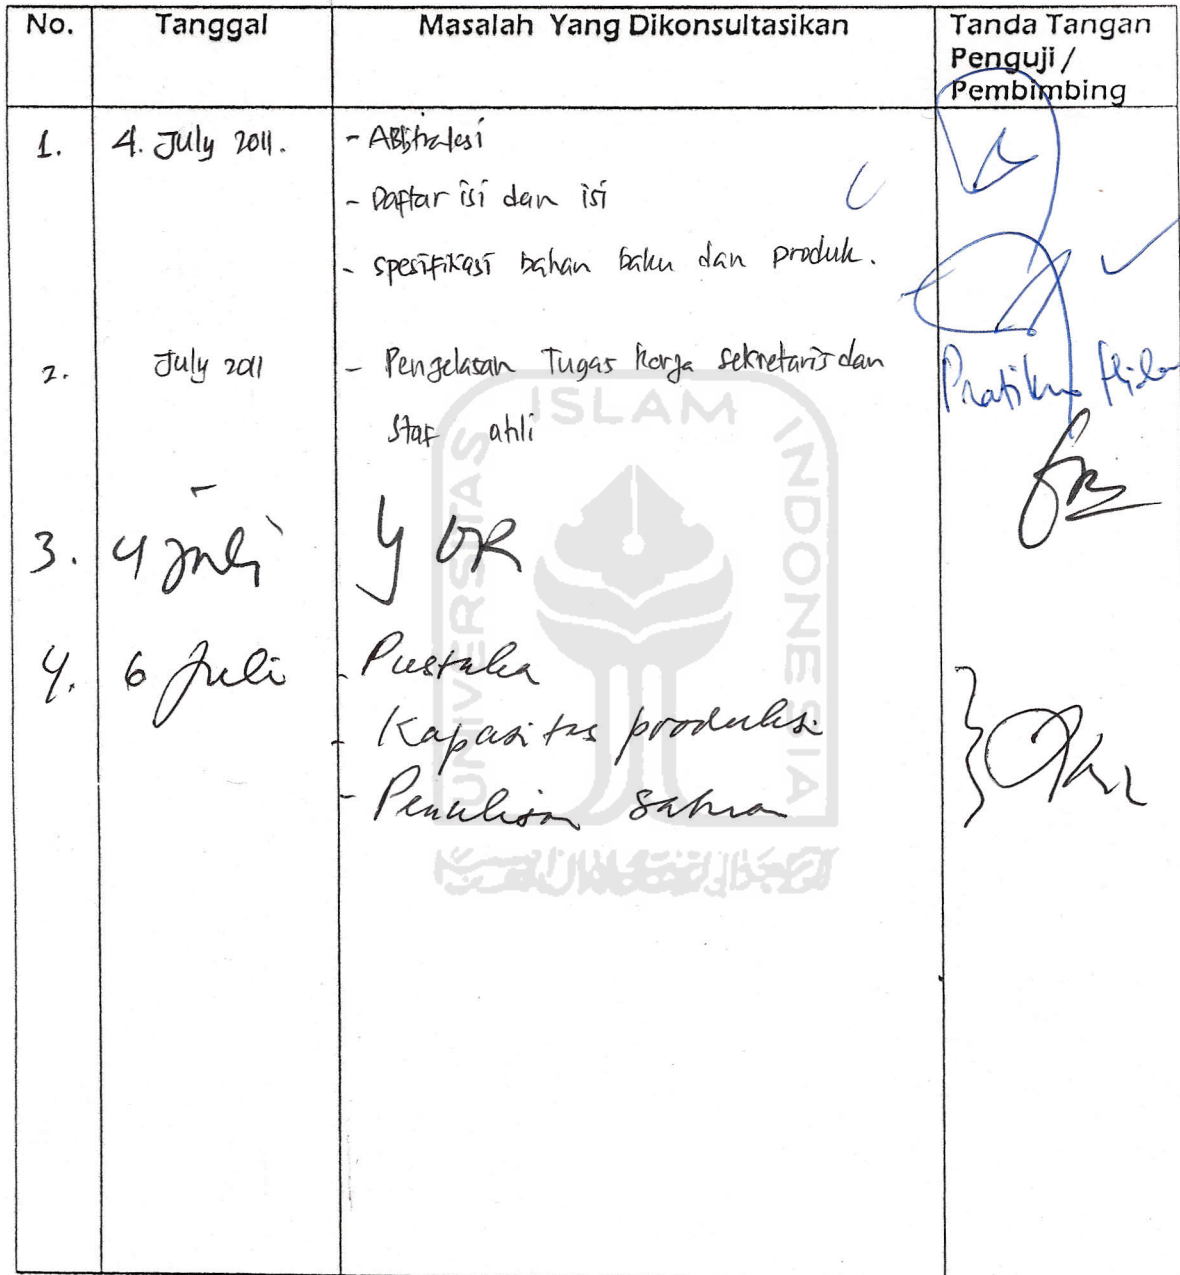 No. Tanggal Masalah Yang Dikonsultasikan Tanda Tangan
Penguji /
Pembimbing
1. 4. July 2011. - Abstraksi
- Daftar isi dan isi
- spesifikasi bahan baku dan produk.
2. July 2011 - Pengelasan Tugas kerja sekretaris dan
Staf ahli
3. 4 Juli
4. 6 Juli - Pustaka
- Kapasitas produksi
- Penulisan
ISLAM
UNIVERSITAS
INDONESIA